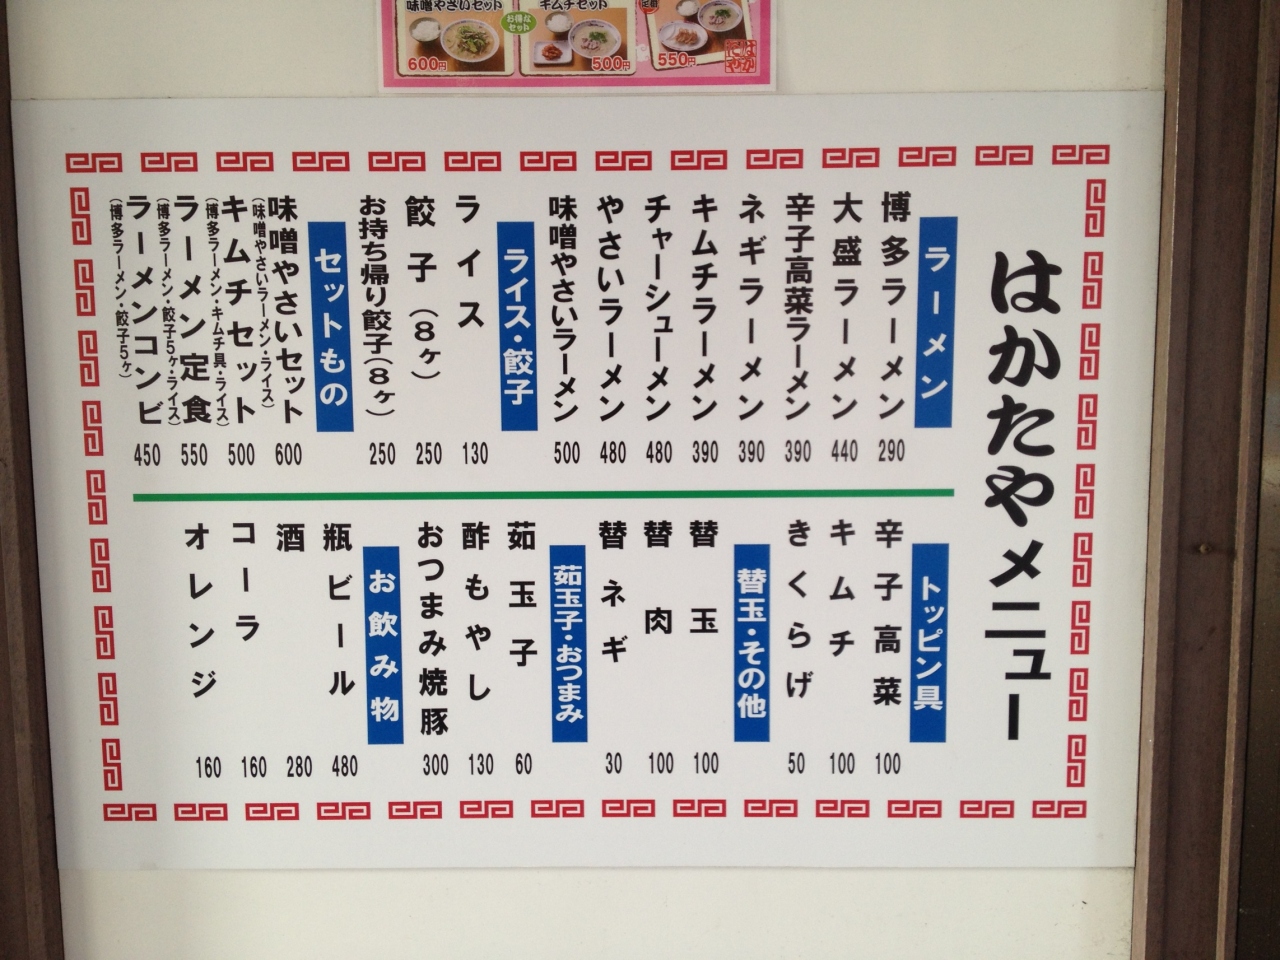 味噌やさいセット
600円
お得な
セット
キムチセット
500円
定食
550円
はかたや
はかたやメニュー
ラーメン
博多ラーメン 290
大盛ラーメン 440
辛子高菜ラーメン 390
ネギラーメン 390
キムチラーメン 390
チャーシューメン 480
やさいラーメン 480
味噌やさいラーメン 500
ライス・餃子
ライス 130
餃子(8ヶ) 250
お持ち帰り餃子(8ヶ) 250
セットもの
味噌やさいセット 600
(味噌やさいラーメン・ライス)
キムチセット 500
(博多ラーメン・キムチ具・ライス)
ラーメン定食 550
(博多ラーメン・餃子5ヶ・ライス)
ラーメンコンビ 450
(博多ラーメン・餃子5ヶ)
トッピン具
辛子高菜 100
キムチ 100
きくらげ 50
替玉・その他
替玉 100
替肉 100
替ネギ 30
茹玉子・おつまみ
茹玉子 60
酢もやし 130
おつまみ焼豚 300
お飲み物
瓶ビール 480
酒 280
コーラ 160
オレンジ 160